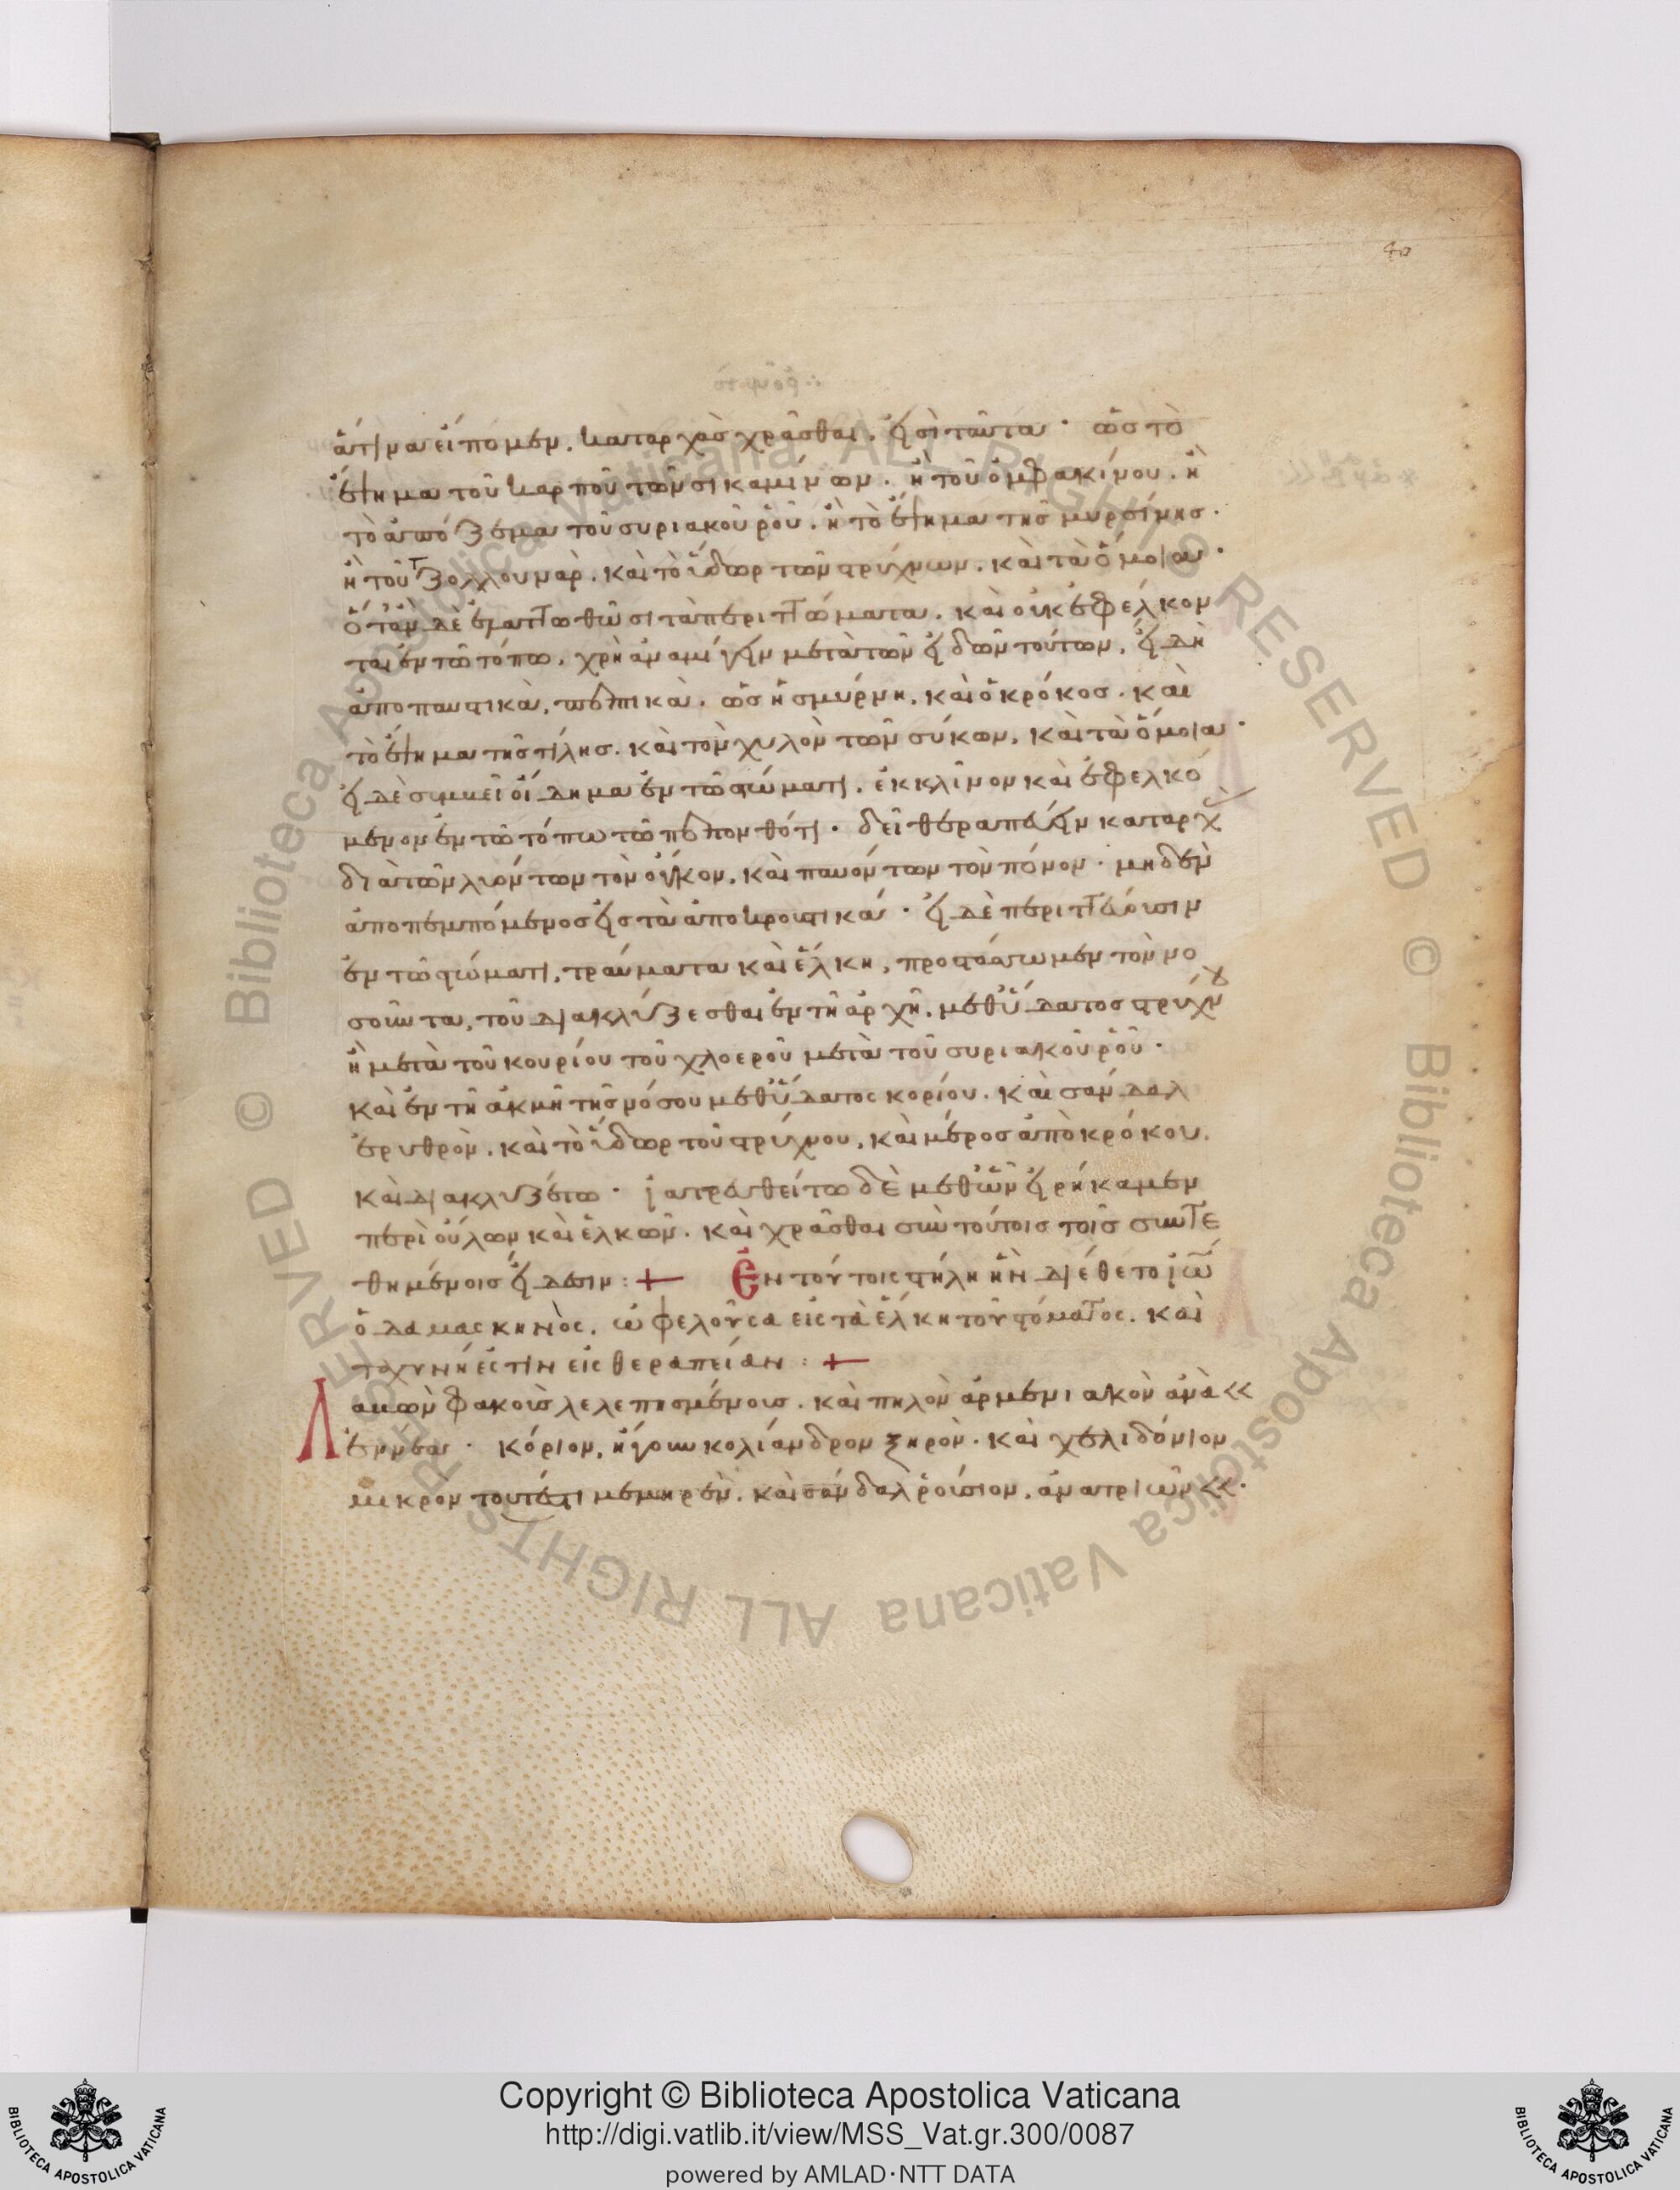 40
ἅτινα εἴπομεν. καταρχὰς χρᾶσθαι. εἰσὶ ταῦτα · ὡς τὸ
ἕψημα τοῦ καρποῦ τῶν σικαμίνων. ἢ τοῦ ὀμφακίνου. ἢ
τὸ ἀπόζεμα τοῦ συριακοῦ ῥοῦ. ἢ τὸ ἕψημα τῆς μυρσίνης.
ἢ τοῦ τζολλουναρ. καὶ τὸ ὕδωρ τῶν στρύχνων. καὶ τὰ ὅμοια ·
ὅταν δὲ ἐναπωθῶσι τὰ περιττώματα. καὶ οὐκ ἐφέλκον
ται ἐν τῶ τόπω. χρὴ ἀναμίγειν μετὰ τῶν εἰδῶν τούτων, εἴδη
ἀποπαυστικὰ, πεπτικὰ. ὡς ἡ σμύρνη. καὶ ὁ κρόκος. καὶ
τὸ ἕψημα τῆς τίλης. καὶ τὸν χυλὸν τῶν σύκων. καὶ τὰ ὅμοια ·
εἰ δὲ συμβεῖ οἴδημα ἐν τῶ στώματι. ἐκκλῖνον καὶ ἐφελκό
μενον ἐν τῶ τόπω τῶ πεπονθότι · δεῖ θεραπεύειν καταρχ
διὰ τῶν λυόντων τὸν ὄγκον. καὶ παυόντων τὸν πόνον · μηδὲν
ἀποπεμπόμενος εἰς τὰ ἀποκρουστικά · εἰ δὲ περιττεύουσιν
ἐν τῶ στώματι, τραύματα καὶ ἕλκη, προστάττωμεν τὸν νο
σοῦντα, τοῦ διακλύζεσθαι ἐν τῆ ἀρχῆ. μεθ' ὕδατος στρύχν
ἢ μετὰ τοῦ κουρίου τοῦ χλοεροῦ μετὰ τοῦ συριακοῦ ῥοῦ ·
καὶ ἐν τῆ ἀκμῆ τῆς νόσου μεθ' ὕδατος κορίου. καὶ σανδαλ
ἐρυθρὸν. καὶ τὸ ὕδωρ τοῦ στρύχνου, καὶ μέρος ἀπὸ κρόκου.
καὶ διακλυζέτω · ἰατρευθείτω δὲ μεθ' ὧν εἰρήκαμεν
περὶ οὔλων καὶ ἑλκῶν. καὶ χρᾶσθαι σὺν τούτοις τοῖς συντε
θημένοις εἴδεσιν :+ Ἐν τούτοις στήλη ἣν διέθετο ἰω
ὁ δαμασκηνὸς. ὠφελοῦσα εἰς τὰ ἕλκη τοῦ στόματος. καὶ
τοχυνή ἐστιν εἰς θεραπείαν :+
Λαβὼν φακοὺς λελεπισμένους. καὶ πηλὸν ἀρμενιακὸν ἀνὰ <<
ἐννέα · κόριον, ἤγουν κολίανδρον ξηρὸν. καὶ χελιδόνιον
μικρον τουτέστι μεμηρέν. καὶ σάνδαλ ῥούσιον, ἀνατριῶν <<.
Copyright © Biblioteca Apostolica Vaticana
http://digi.vatlib.it/view/MSS_Vat.gr.300/0087
powered by AMLAD·NTT DATA